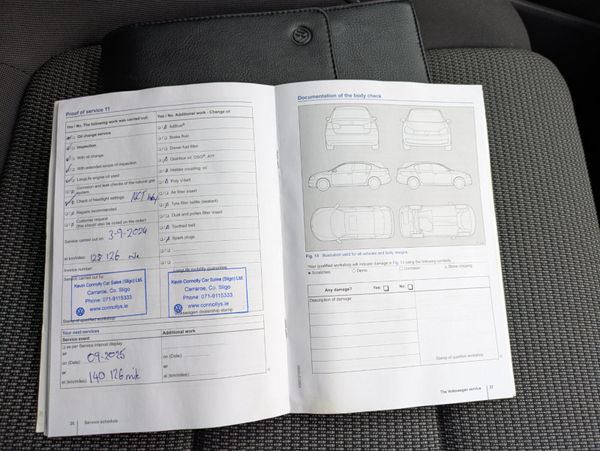 Proof of service 11
Yes / No The following work was carried out:
Oil change service
Inspection
With oil change
With extended scope of inspection
LongLife engine oil used
Corrosion and leak checks of the natural gas system
Check of headlight settings
Repairs recommended
Customer request
(this should also be noted on the order)
Service carried out on: 3-9-2024
at km/miles: 128 126 mls
Invoice number:
Service carried out by:
Kevin Connolly Car Sales (Sligo) Ltd.
Carraroe, Co. Sligo
Phone: 071-9115333
www.connollys.ie
Stamp of qualified workshop
Yes / No Additional work - Change of:
AdBlue®
Brake fluid
Diesel fuel filter
Gearbox oil, DSG®, ATF
Haldex coupling oil
Poly V-belt
Air filter insert
Tyre filler bottle (sealant)
Dust and pollen filter insert
Toothed belt
Spark plugs
LongLife mobility guarantee
Kevin Connolly Car Sales (Sligo) Ltd.
Carraroe, Co. Sligo
Phone: 071-9115333
www.connollys.ie
Volkswagen dealership stamp
Your next services
Service event
as per Service interval display
or
on (Date): 09-2025
or
at (km/miles): 140 126 mls
Additional work
on (Date):
or
at (km/miles):
36 Service schedule
Documentation of the body check
Fig. 13 Illustration valid for all vehicles and body designs.
Your qualified workshop will indicate damage in Fig. 13 using the following symbols:
Scratches Dents Corrosion Stone chipping
Any damage? Yes: No:
Description of damage:
Stamp of qualified workshop
The Volkswagen service 37